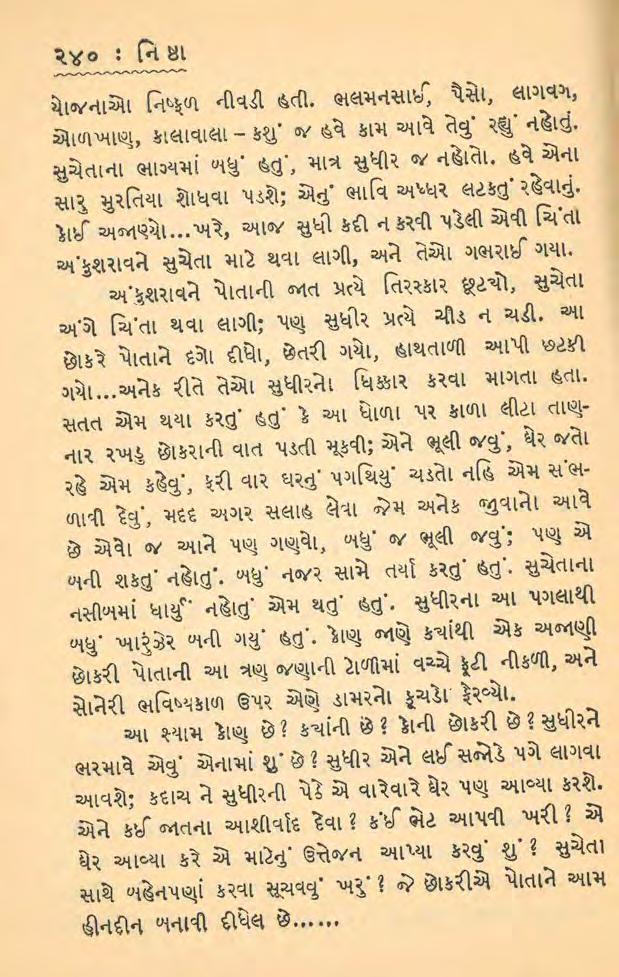 ૨૪૦ : નિષ્ઠા
યોજનાઓ નિષ્ફળ નીવડી હતી. ભલમનસાઈ, પૈસો, લાગવગ,
ઓળખાણ, કાલાવાલા – કશું જ હવે કામ આવે તેવું રહ્યું નહોતું.
સુચેતાના ભાગ્યમાં બધું હતું, માત્ર સુધીર જ નહોતો. હવે એના
સારુ મુરતિયા શોધવા પડશે; એનું ભાવિ અધ્ધર લટકતું રહેવાનું.
કોઈ અજાણ્યો...ખરે, આજ સુધી કદી ન કરવી પડેલી એવી ચિંતા
અંકુશરાવને સુચેતા માટે થવા લાગી, અને તેઓ ગભરાઈ ગયા.
અંકુશરાવને પોતાની જાત પ્રત્યે તિરસ્કાર છૂટયો, સુચેતા
અંગે ચિંતા થવા લાગી; પણ સુધીર પ્રત્યે ચીડ ન ચડી. આ
છોકરે પોતાને દગો દીધો, છેતરી ગયો, હાથતાળી આપી છટકી
ગયો...અનેક રીતે તેઓ સુધીરનો ધિક્કાર કરવા માગતા હતા.
સતત એમ થયા કરતું હતું કે આ ધોળા પર કાળા લીટા તાણ-
નાર રખડુ છોકરાની વાત પડતી મૂકવી; એને ભૂલી જવું, ઘેર જતો
રહે એમ કહેવું, ફરી વાર ઘરનું પગથિયું ચડતો નહિ એમ સંભ-
ળાવી દેવું, મદદ અગર સલાહ લેવા જેમ અનેક જુવાનો આવે
છે એવો જ આને પણ ગણવો, બધું જ ભૂલી જવું; પણ એ
બની શકતું નહોતું. બધું નજર સામે તર્યા કરતું હતું. સુચેતાના
નસીબમાં ધાર્યું નહોતું એમ થતું હતું. સુધીરના આ પગલાથી
બધું ખારુંઝેર બની ગયું હતું. કોણ જાણે કયાંથી એક અજાણી
છોકરી પોતાની આ ત્રણ જણાની ટોળીમાં વચ્ચે ફૂટી નીકળી, અને
સોનેરી ભવિષ્યકાળ ઉપર એણે ડામરનો કૂચડો ફેરવ્યો.
આ શ્યામ કોણ છે? કયાંની છે? કોની છોકરી છે? સુધીરને
ભરમાવે એવું એનામાં શું છે? સુધીર એને લઈ સજોડે પગે લાગવા
આવશે; કદાચ ને સુધીરની પેઠે એ વારેવારે ઘેર પણ આવ્યા કરશે.
એને કઈ જાતના આશીર્વાદ દેવા? કંઈ ભેટ આપવી ખરી? એ
ઘેર આવ્યા કરે એ માટેનું ઉત્તેજન આપ્યા કરવું શું? સુચેતા
સાથે બહેનપણાં કરવા સૂચવવું ખરું? જે છોકરીએ પોતાને આમ
હીનદીન બનાવી દીધેલ છે......